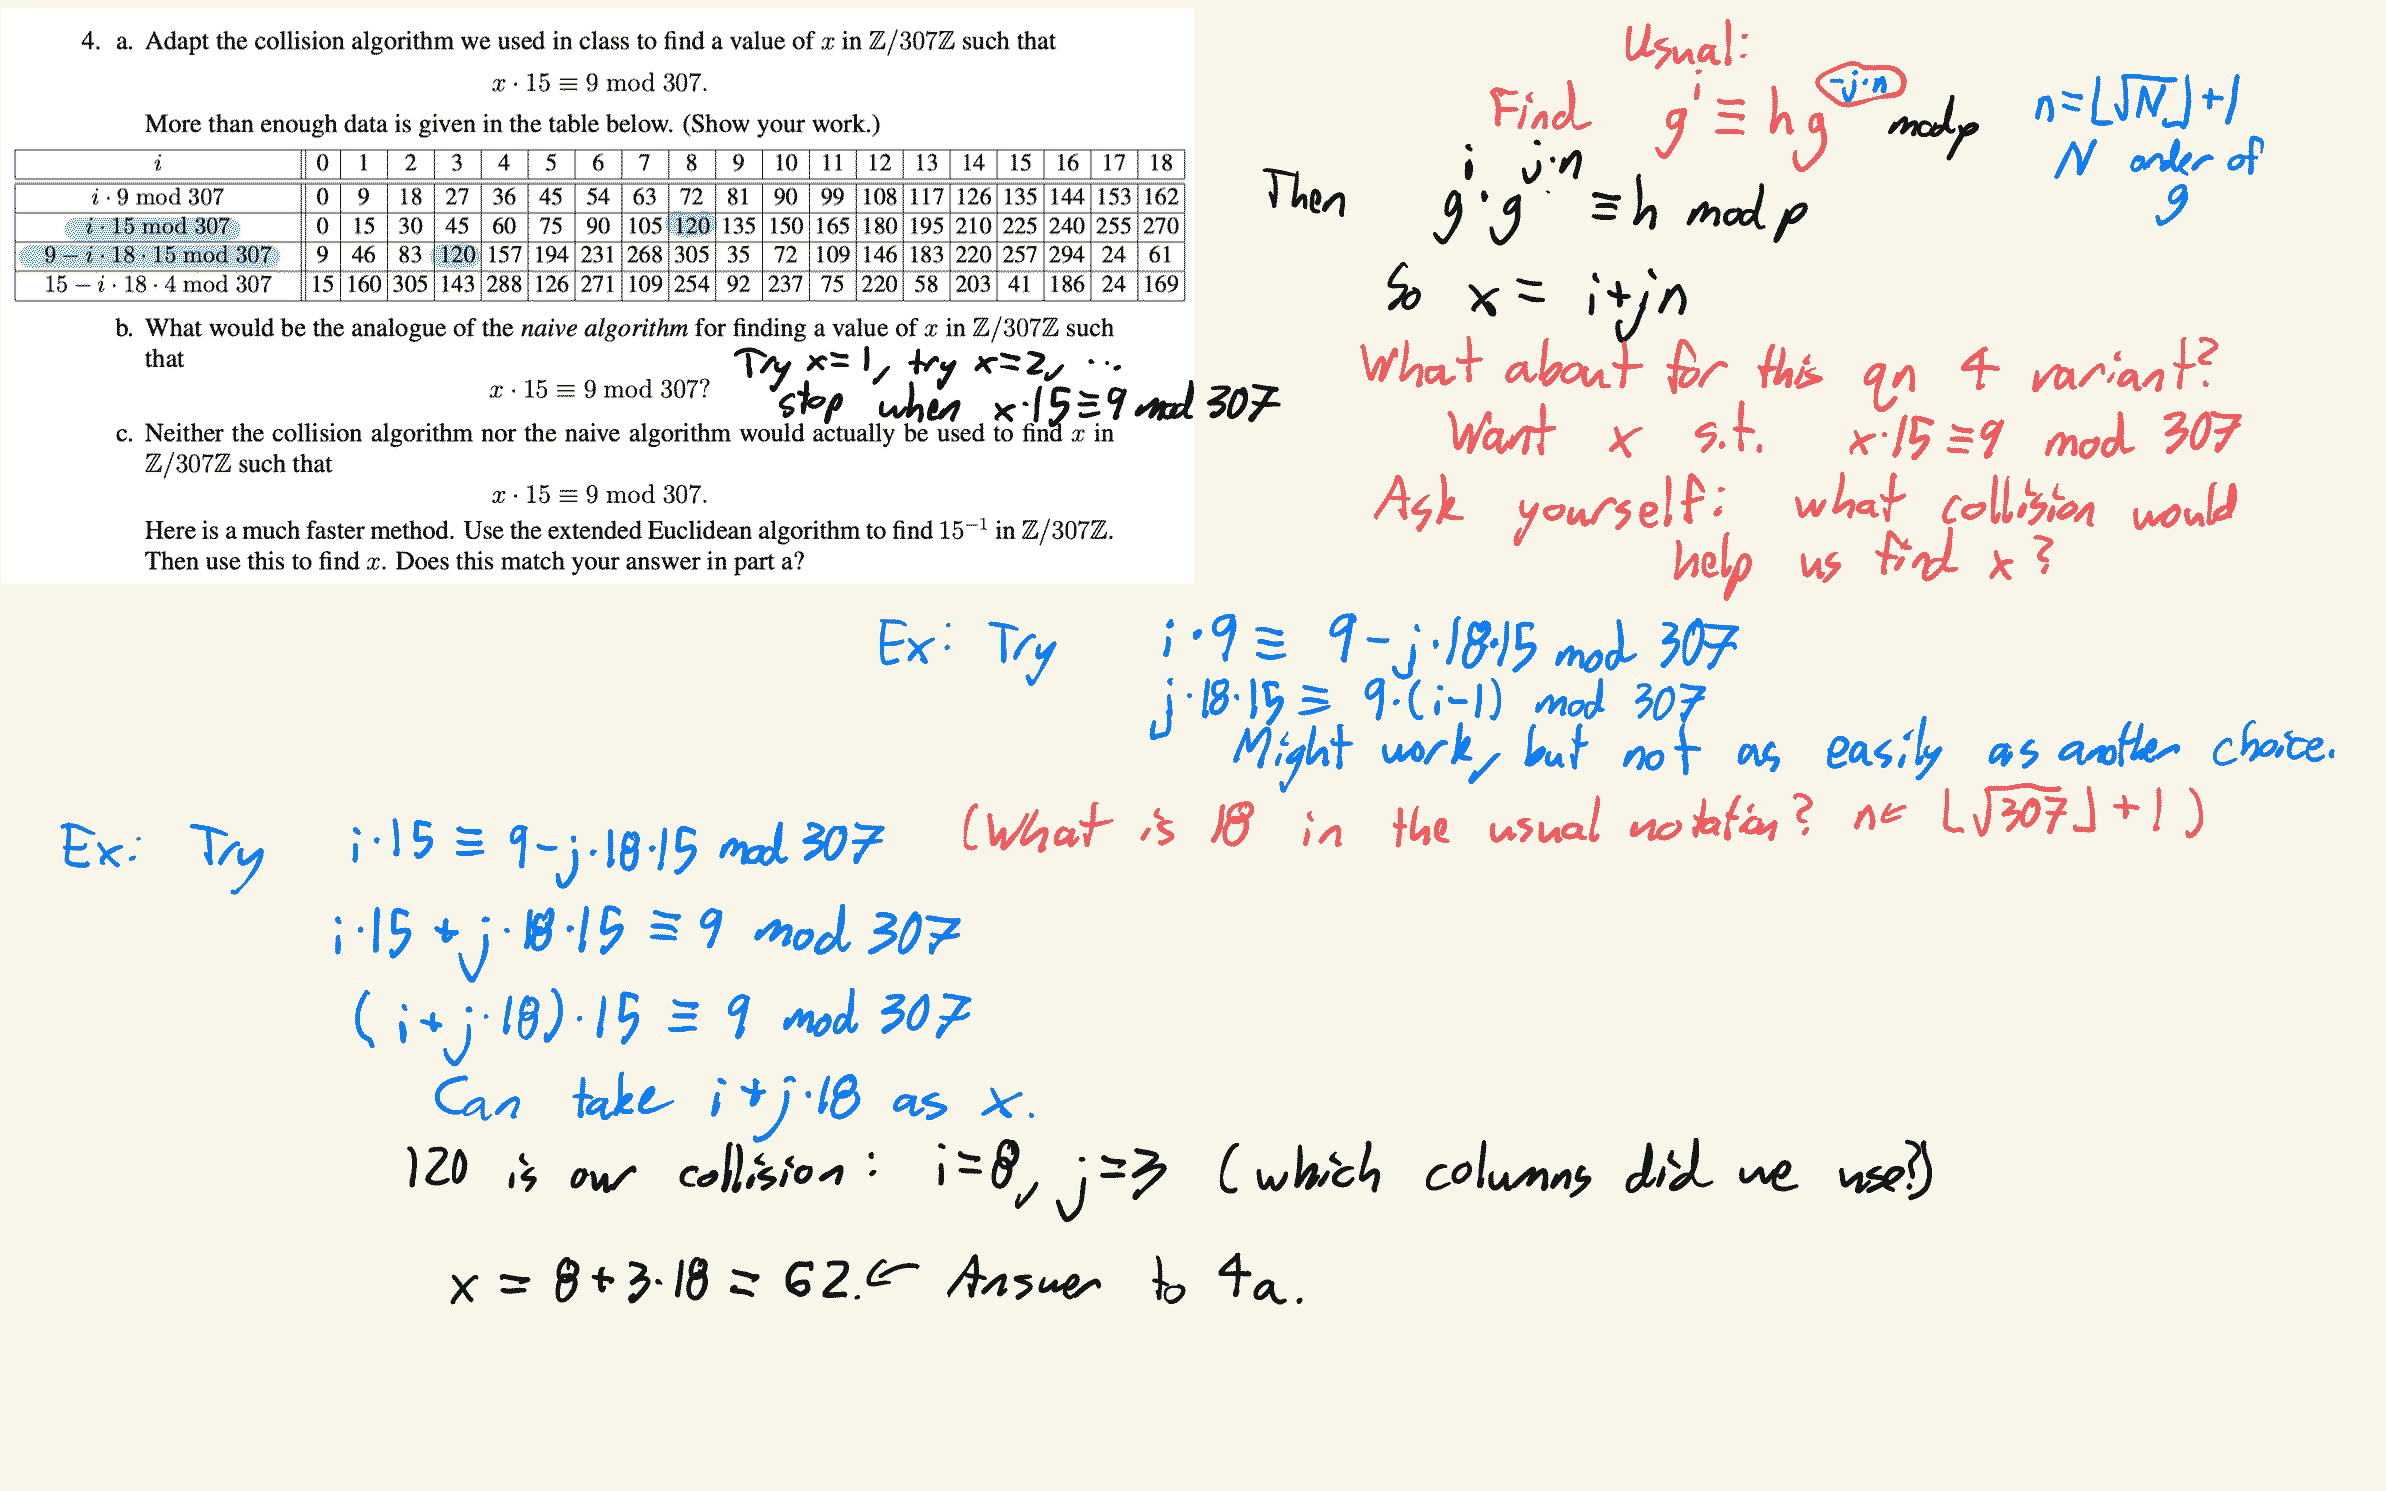 4. a. Adapt the collision algorithm we used in class to find a value of x in ℤ/307ℤ such that
x · 15 ≡ 9 mod 307.
More than enough data is given in the table below. (Show your work.)
i 0 1 2 3 4 5 6 7 8 9 10 11 12 13 14 15 16 17 18
i · 9 mod 307 0 9 18 27 36 45 54 63 72 81 90 99 108 117 126 135 144 153 162
i · 15 mod 307 0 15 30 45 60 75 90 105 120 135 150 165 180 195 210 225 240 255 270
9 − i · 18 · 15 mod 307 9 46 83 120 157 194 231 268 305 35 72 109 146 183 220 257 294 24 61
15 − i · 18 · 4 mod 307 15 160 305 143 288 126 271 109 254 92 237 75 220 58 203 41 186 24 169
b. What would be the analogue of the naive algorithm for finding a value of x in ℤ/307ℤ such
that
x · 15 ≡ 9 mod 307?
Try x=1, try x=2, ...
stop when x·15≡9 mod 307
c. Neither the collision algorithm nor the naive algorithm would actually be used to find x in
ℤ/307ℤ such that
x · 15 ≡ 9 mod 307.
Here is a much faster method. Use the extended Euclidean algorithm to find 15⁻¹ in ℤ/307ℤ.
Then use this to find x. Does this match your answer in part a?
Usual:
Find gⁱ ≡ hg^(-j·n) mod p
n=⌊√N⌋+1
N order of
g
Then gⁱ·g^(j·n) ≡ h mod p
So x = i+jn
What about for this qn 4 variant?
Want x s.t. x·15≡9 mod 307
Ask yourself: what collision would
help us find x?
Ex: Try i·9 ≡ 9−j·18·15 mod 307
j·18·15 ≡ 9·(i−1) mod 307
Might work, but not as easily as another choice.
Ex: Try i·15 ≡ 9−j·18·15 mod 307 (What is 18 in the usual notation? n← ⌊√307⌋+1)
i·15 + j·18·15 ≡ 9 mod 307
(i+j·18)·15 ≡ 9 mod 307
Can take i+j·18 as x.
120 is our collision: i=8, j=3 (which columns did we use?)
x = 8+3·18 = 62. ← Answer to 4a.